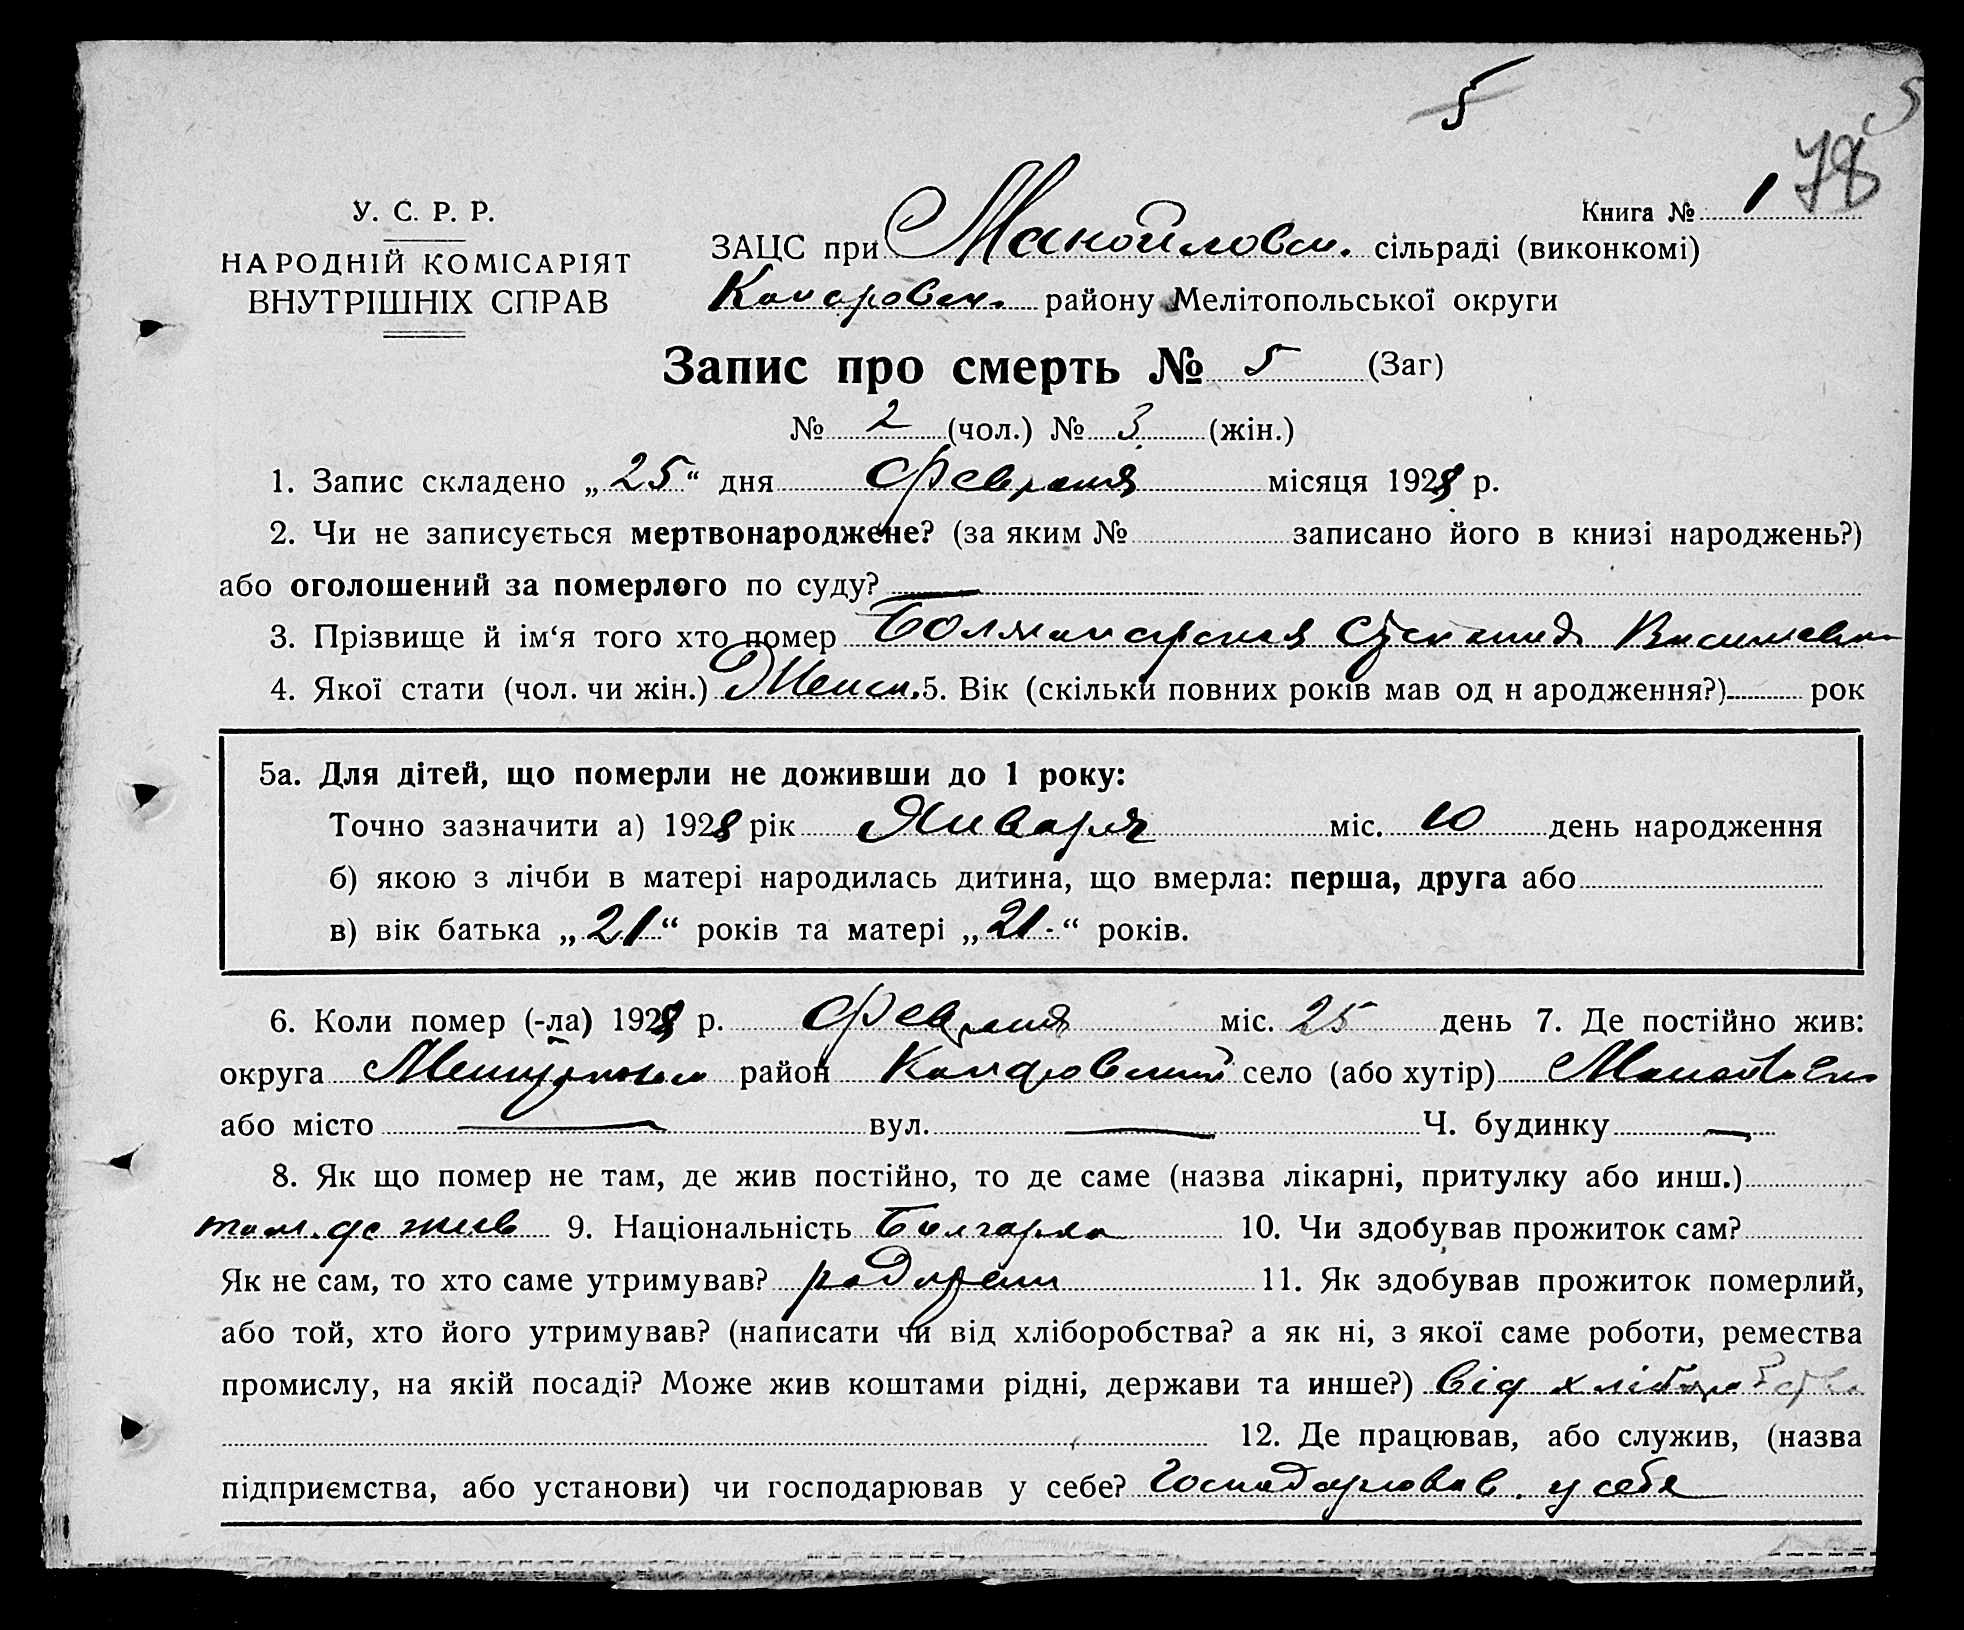 5
5
78
У. С. Р. Р.
НАРОДНІЙ КОМІСАРІЯТ
ВНУТРІШНІХ СПРАВ
Книга № 1
ЗАЦС при Манойловск. сільраді (виконкомі)
району Мелітопольської округи
Запис про смерть № 5 (Заг)
№ 2 (чол.) № 3 (жін.)
1. Запис складено „25“ дня Февраля місяця 1928 р.
2. Чи не записується мертвонароджене? (за яким № записано його в книзі народжень?)
або оголошений за померлого по суду? —
3. Прізвище й ім‘я того хто помер
4. Якої стати (чол. чи жін.) Женск. 5. Вік (скільки повних років мав од н ародження?) рок
5а. Для дітей, що померли не доживши до 1 року:
Точно зазначити а) 1928 рік Января міс. 10 день народження
б) якою з лічби в матері народилась дитина, що вмерла: перша, друга або
в) вік батька „21“ років та матері „21“ років.
6. Коли помер (-ла) 1928 р. Февраля міс. 25 день 7. Де постійно жив:
округа район село (або хутір)
або місто — вул. — Ч. будинку —
8. Як що помер не там, де жив постійно, то де саме (назва лікарні, притулку або инш.)
там. де жив 9. Національність Болгарка 10. Чи здобував прожиток сам?
Як не сам, то хто саме утримував? 11. Як здобував прожиток померлий,
або той, хто його утримував? (написати чи від хліборобства? а як ні, з якої саме роботи, ремества
промислу, на якій посаді? Може жив коштами рідні, держави та инше?) від хліборобства
12. Де працював, або служив, (назва
підприємства, або установи) чи господарював у себе? Господарював. у себе